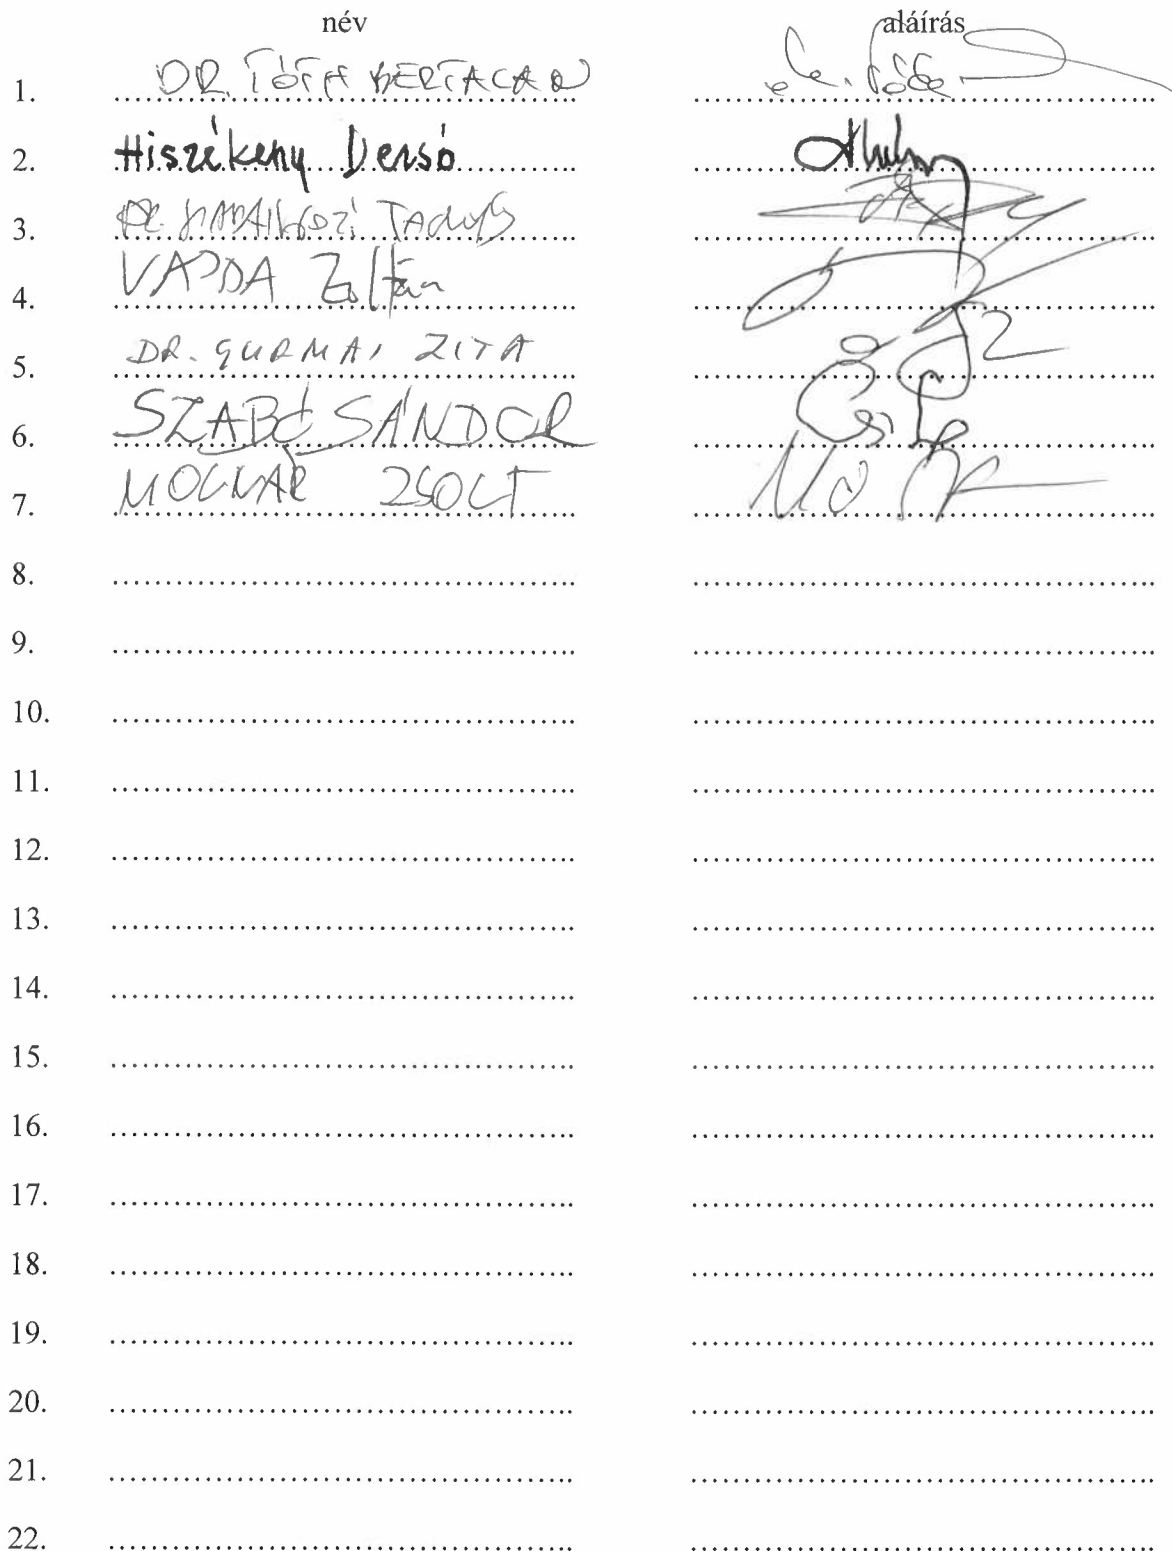 név aláírás
1. DR. TÓTH BERTALAN
2. Hiszékeny Dezső
3. DR. HARANGOZÓ TAMÁS
4. VAJDA Zoltán
5. DR. GURMAI ZITA
6. SZABÓ SÁNDOR
7. MOLNÁR ZSOLT
8.
9.
10.
11.
12.
13.
14.
15.
16.
17.
18.
19.
20.
21.
22.